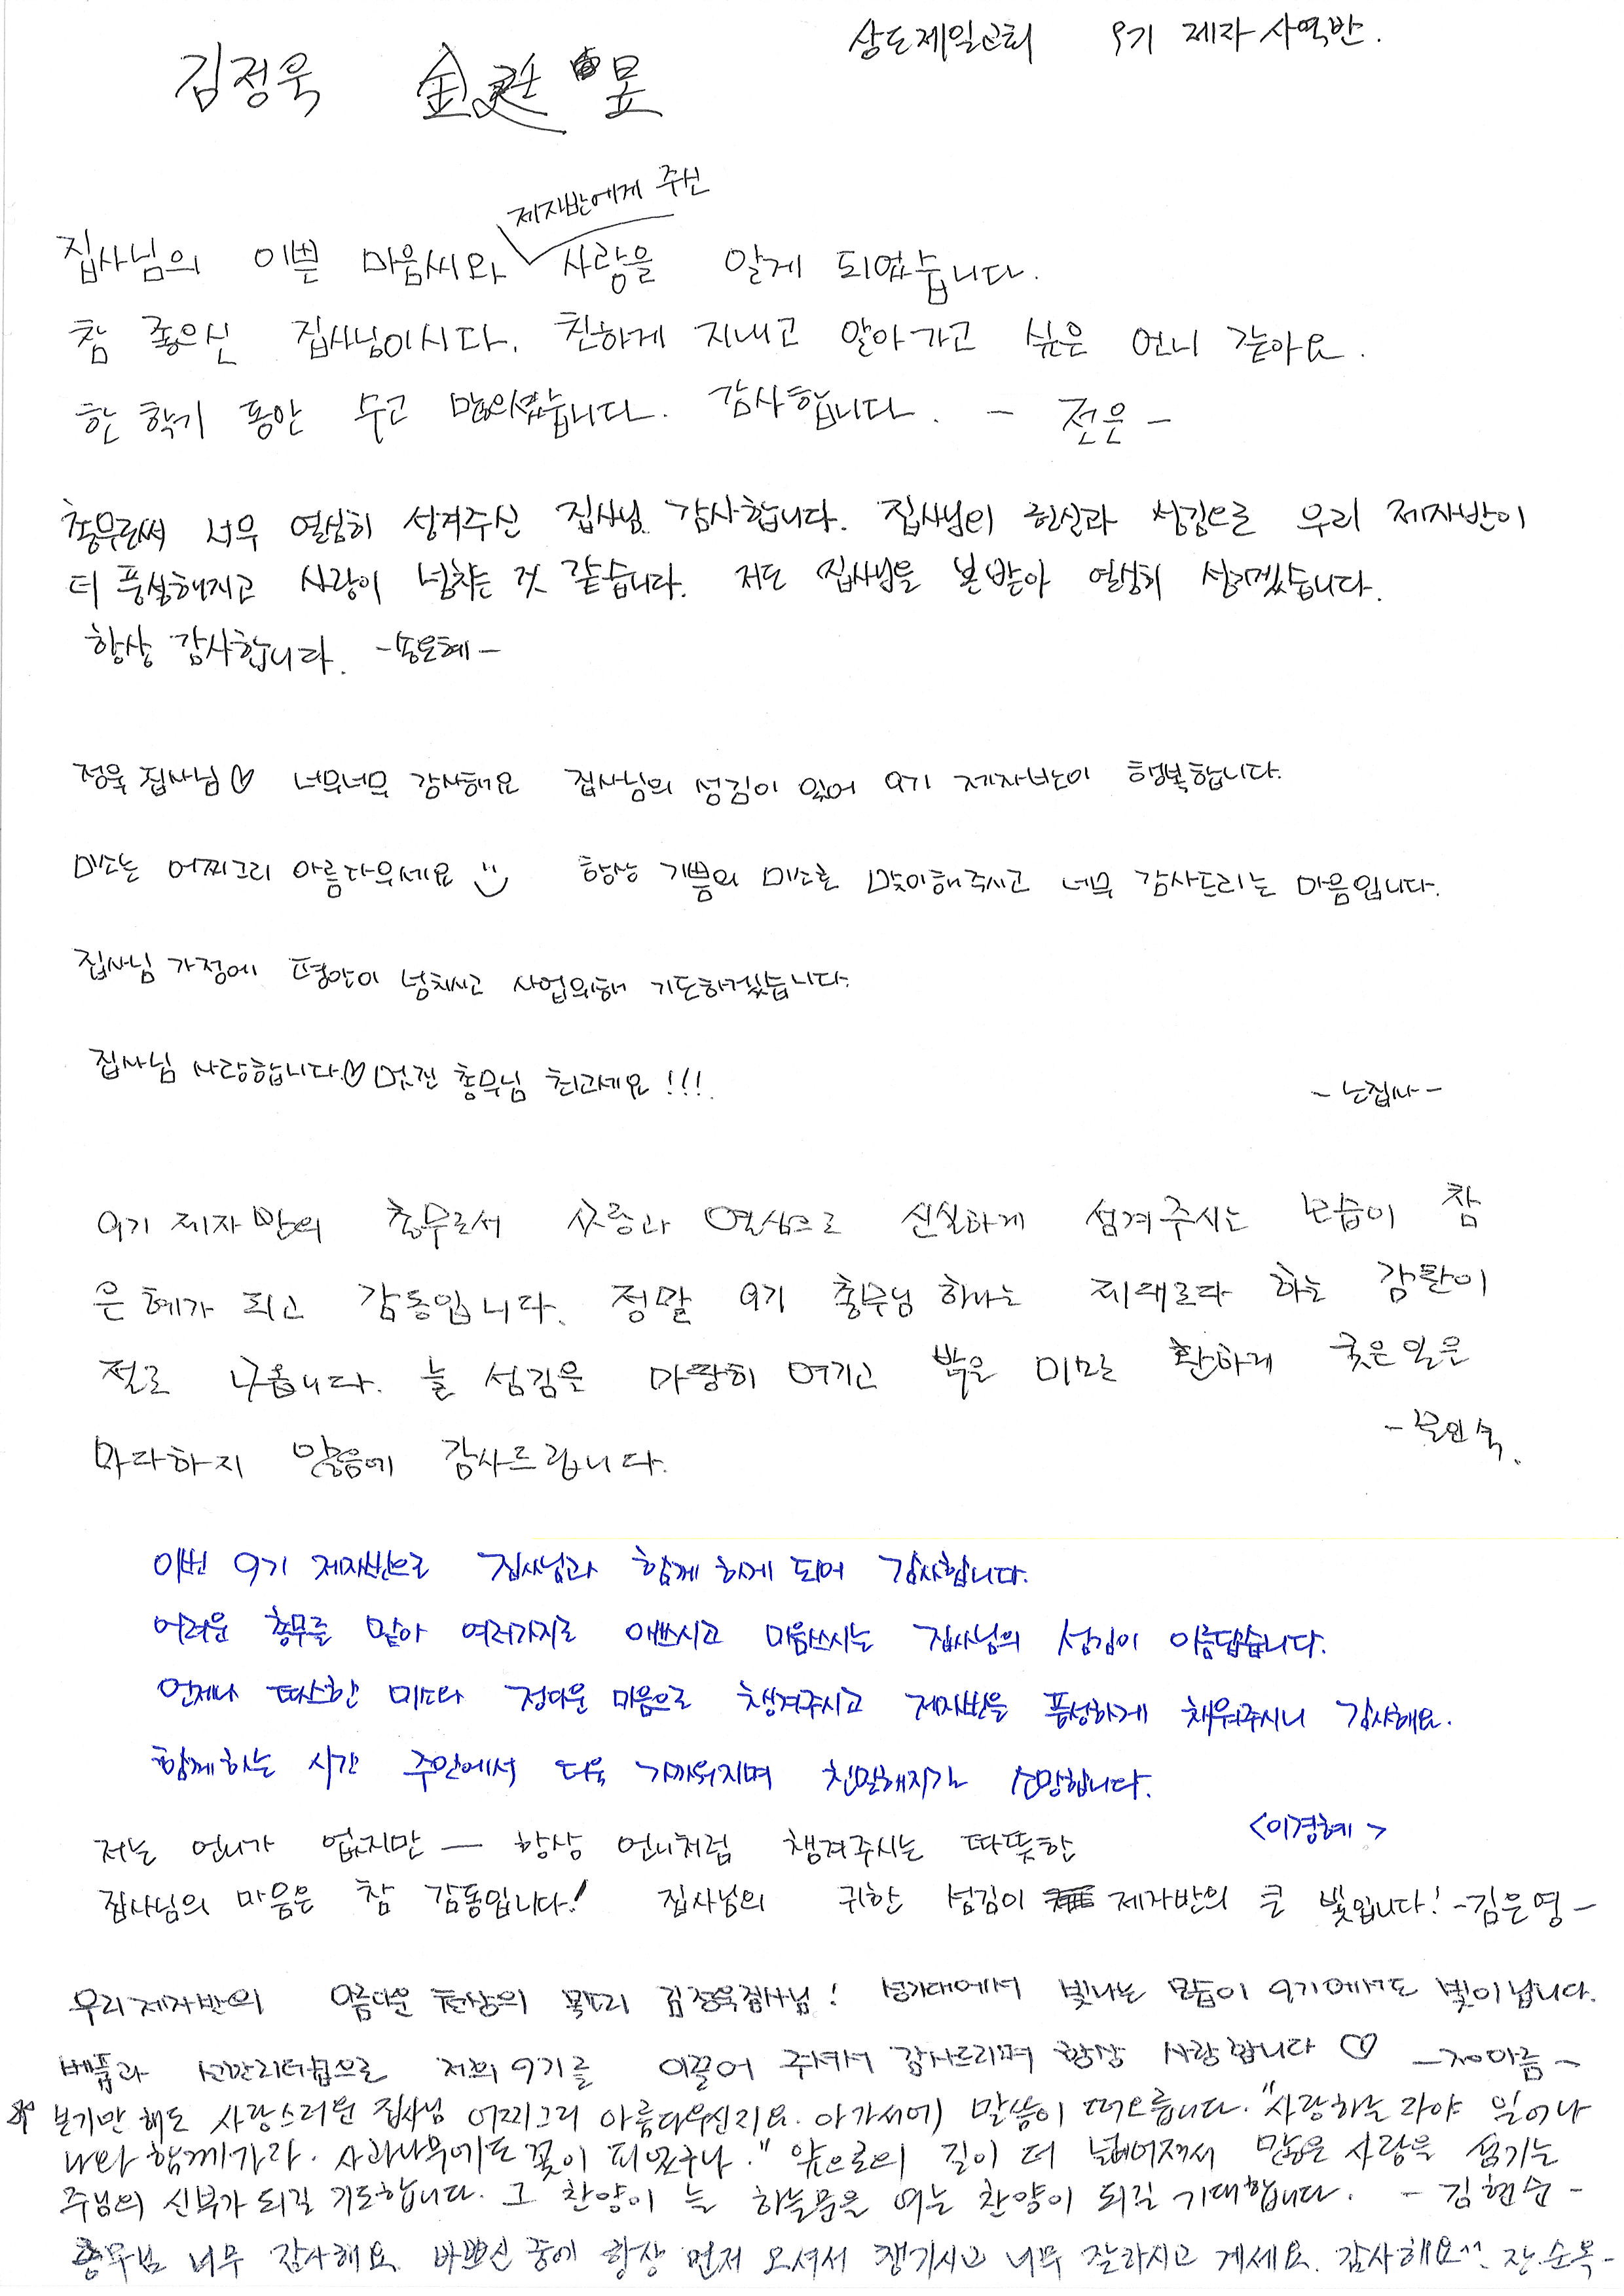 상도제일교회 9기 제자 사역반.
김정욱 金廷昱
제자반에게 주신
집사님의 이쁜 마음씨와 사랑을 알게 되었습니다.
참 좋으신 집사님이시다. 친하게 지내고 알아가고 싶은 언니 같아요.
한 학기 동안 수고 많으셨습니다. 감사합니다. - 전은 -
총무로써 너무 열심히 섬겨주신 집사님 감사합니다. 집사님의 헌신과 섬김으로 우리 제자반이
더 풍성해지고 사랑이 넘치는 것 같습니다. 저도 집사님을 본받아 열심히 섬기겠습니다.
항상 감사합니다. -송은혜-
정욱 집사님♡ 너무너무 감사해요 집사님의 섬김이 있어 9기 제자반이 행복합니다.
미소는 어찌그리 아름다우세요 :) 항상 기쁨의 미소로 맞이해주시고 너무 감사드리는 마음입니다.
집사님 가정에 평안이 넘치시고 사업위해 기도하겠습니다.
집사님 사랑합니다.♡ 멋진 총무님 최고세요!!!
- 노집사 -
9기 제자반의 총무로서 사랑과 열심으로 신실하게 섬겨주시는 모습이 참
은혜가 되고 감동입니다. 정말 9기 총무님 하나는 제대로다 하는 감탄이
절로 나옵니다. 늘 섬김은 마땅히 여기고 밝은 미소로 환하게 궂은 일은
마다하지 않음에 감사드립니다.
이번 9기 제자반으로 집사님과 함께 하게 되어 감사합니다.
어려운 총무를 맡아 여러가지로 애쓰시고 마음쓰시는 집사님의 섬김이 아름답습니다.
언제나 따스한 미소와 정다운 마음으로 챙겨주시고 제자반을 풍성하게 채워주시니 감사해요.
함께하는 시간 주안에서 더욱 가까워지며 친밀해지기를 소망합니다.
<이경혜>
저는 언니가 없지만 — 항상 언니처럼 챙겨주시는 따뜻한
집사님의 마음은 참 감동입니다! 집사님의 귀한 섬김이 제자반의 큰 빛입니다! -김은영-
우리 제자반의 아름다운 천상의 목소리 김정욱집사님! 성가대에서 빛나는 모습이 9기에서도 빛이 납니다.
베품과 리더쉽으로 저희 9기를 이끌어 주셔서 감사드리며 항상 사랑합니다 ♡
* 보기만 해도 사랑스러운 집사님 어찌그리 아름다우신지요. 아가서에) 말씀이 떠오릅니다. "사랑하는 라야 일어나
나와 함께가라. 사과나무에도 꽃이 피었구나." 앞으로의 길이 더 넓어져서 많은 사람을 섬기는
주님의 신부가 되길 기도합니다. 그 찬양이 늘 하늘문을 여는 찬양이 되길 기대합니다. - 김현순 -
총무님 너무 감사해요 바쁘신 중에 항상 먼저 오셔서 챙기시고 너무 잘하시고 계세요. 감사해요^^ 장순옥-